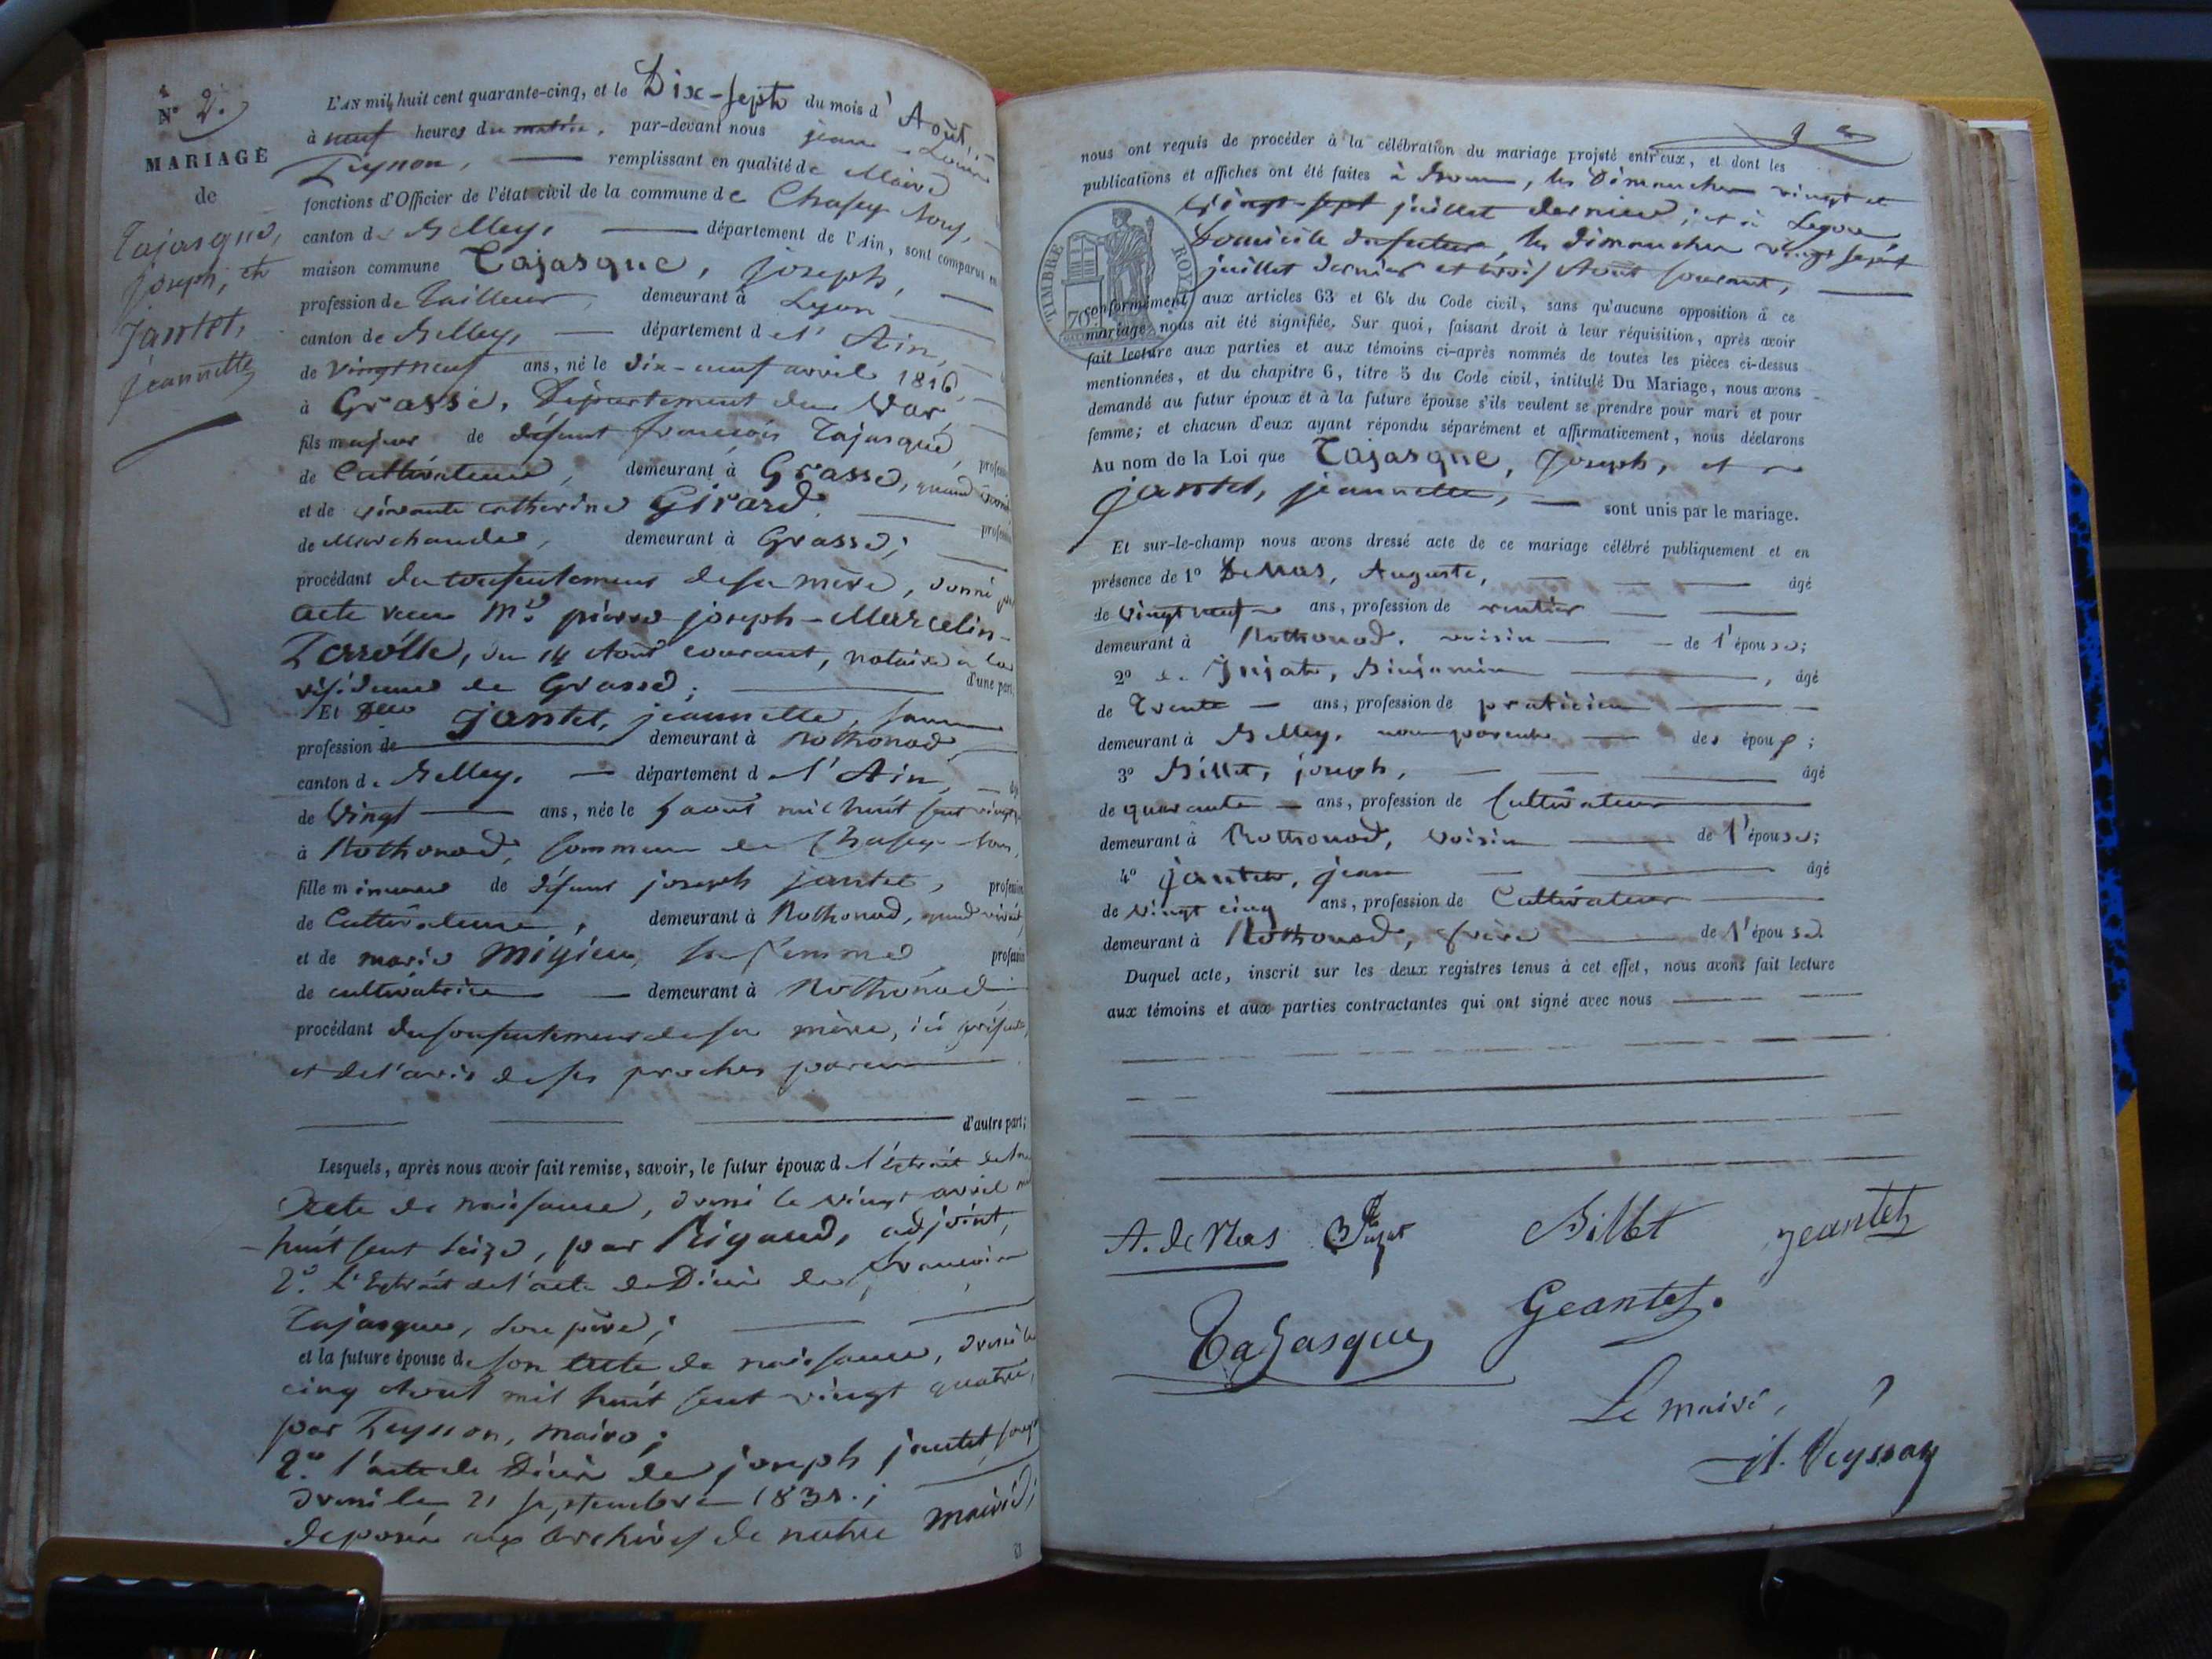 N° 2.
MARIAGE
de
Tajasque,
Joseph, et
jantet,
jeannette
L'AN mil huit cent quarante-cinq, et le Dix-sept du mois d'Août,
à neuf heures du matin, par-devant nous jean-Louis
Teysson, remplissant en qualité de Maire
fonctions d'Officier de l'état civil de la commune de Chazey
canton de Belley, département de l'Ain, sont comparus en
maison commune Tajasque, joseph,
profession de Tailleur, demeurant à
canton de Belley, département de l'Ain,
de vingt neuf ans, né le dix-neuf avril 1816,
à Grasse, Département du Var,
fils majeur de défunt françois Tajasque,
de Cultivateur, demeurant à Grasse, quand vivait,
et de vivante catherine Girard,
de Marchande, demeurant à Grasse;
procédant du consentement de sa mère, donné par
acte reçu Me. pierre-joseph-Marcelin-
du 14 Août courant, notaire à la
résidence de Grasse; d'une part;
Et Delle jantet, jeannette, sans
profession de demeurant à Rothonod
canton de Belley, département de l'Ain,
de Vingt ans, née le 5 août mil huit cent vingt
à Rothonod, commune de Chazey
fille mineure de défunt joseph jantet,
de Cultivateur, demeurant à Rothonod, quand vivait,
et de marie Migieu, sa femme,
de cultivatrice demeurant à Rothonod
procédant du consentement de sa mère, ici présente,
et de l'avis de ses proches parens
d'autre part;
Lesquels, après nous avoir fait remise, savoir, le futur époux de l'extrait de son
acte de naissance, dressé le vingt avril mil
huit cent seize, par Rigaud, adjoint,
2°. l'Extrait de l'acte de Décès de françois
Tajasque, son père;
et la future épouse de son acte de naissance, dressé le
cinq Août mil huit cent vingt quatre,
par Teysson, maire;
2°. l'acte de Décès de joseph jantet, son père
dressé le 21 septembre
déposés aux archives de notre mairie;
nous ont requis de procéder à la célébration du mariage projeté entr'eux, et dont les
publications et affiches ont été faites à les Dimanches vingt et
vingt-sept juillet dernier; et à
Domicile du futur, les dimanches vingt sept
juillet dernier et trois Août courant,
TIMBRE ROYAL
conformément aux articles 63 et 64 du Code civil, sans qu'aucune opposition à ce
mariage nous ait été signifiée. Sur quoi, faisant droit à leur réquisition, après avoir
fait lecture aux parties et aux témoins ci-après nommés de toutes les pièces ci-dessus
mentionnées, et du chapitre 6, titre 5 du Code civil, intitulé Du Mariage, nous avons
demandé au futur époux et à la future épouse s'ils veulent se prendre pour mari et pour
femme; et chacun d'eux ayant répondu séparément et affirmativement, nous déclarons
Au nom de la Loi que Tajasque, Joseph, et
jantet, jeannette, sont unis par le mariage.
Et sur-le-champ nous avons dressé acte de ce mariage célébré publiquement et en
présence de 1° Auguste, âgé
de vingt neuf ans, profession de rentier
demeurant à Rothonod, voisin de l'épouse;
2° de Benjamin, âgé
de Trente ans, profession de praticien
demeurant à Belley, non parent des époux;
3° Billet, joseph, âgé
de quarante ans, profession de Cultivateur
demeurant à Rothonod, voisin de l'épouse;
4° jantet, jean âgé
de vingt cinq ans, profession de Cultivateur
demeurant à Rothonod, frère de l'épouse.
Duquel acte, inscrit sur les deux registres tenus à cet effet, nous avons fait lecture
aux témoins et aux parties contractantes qui ont signé avec nous
Billet jeantet
Geantet.
Tajasque
Le maire,
Teysson